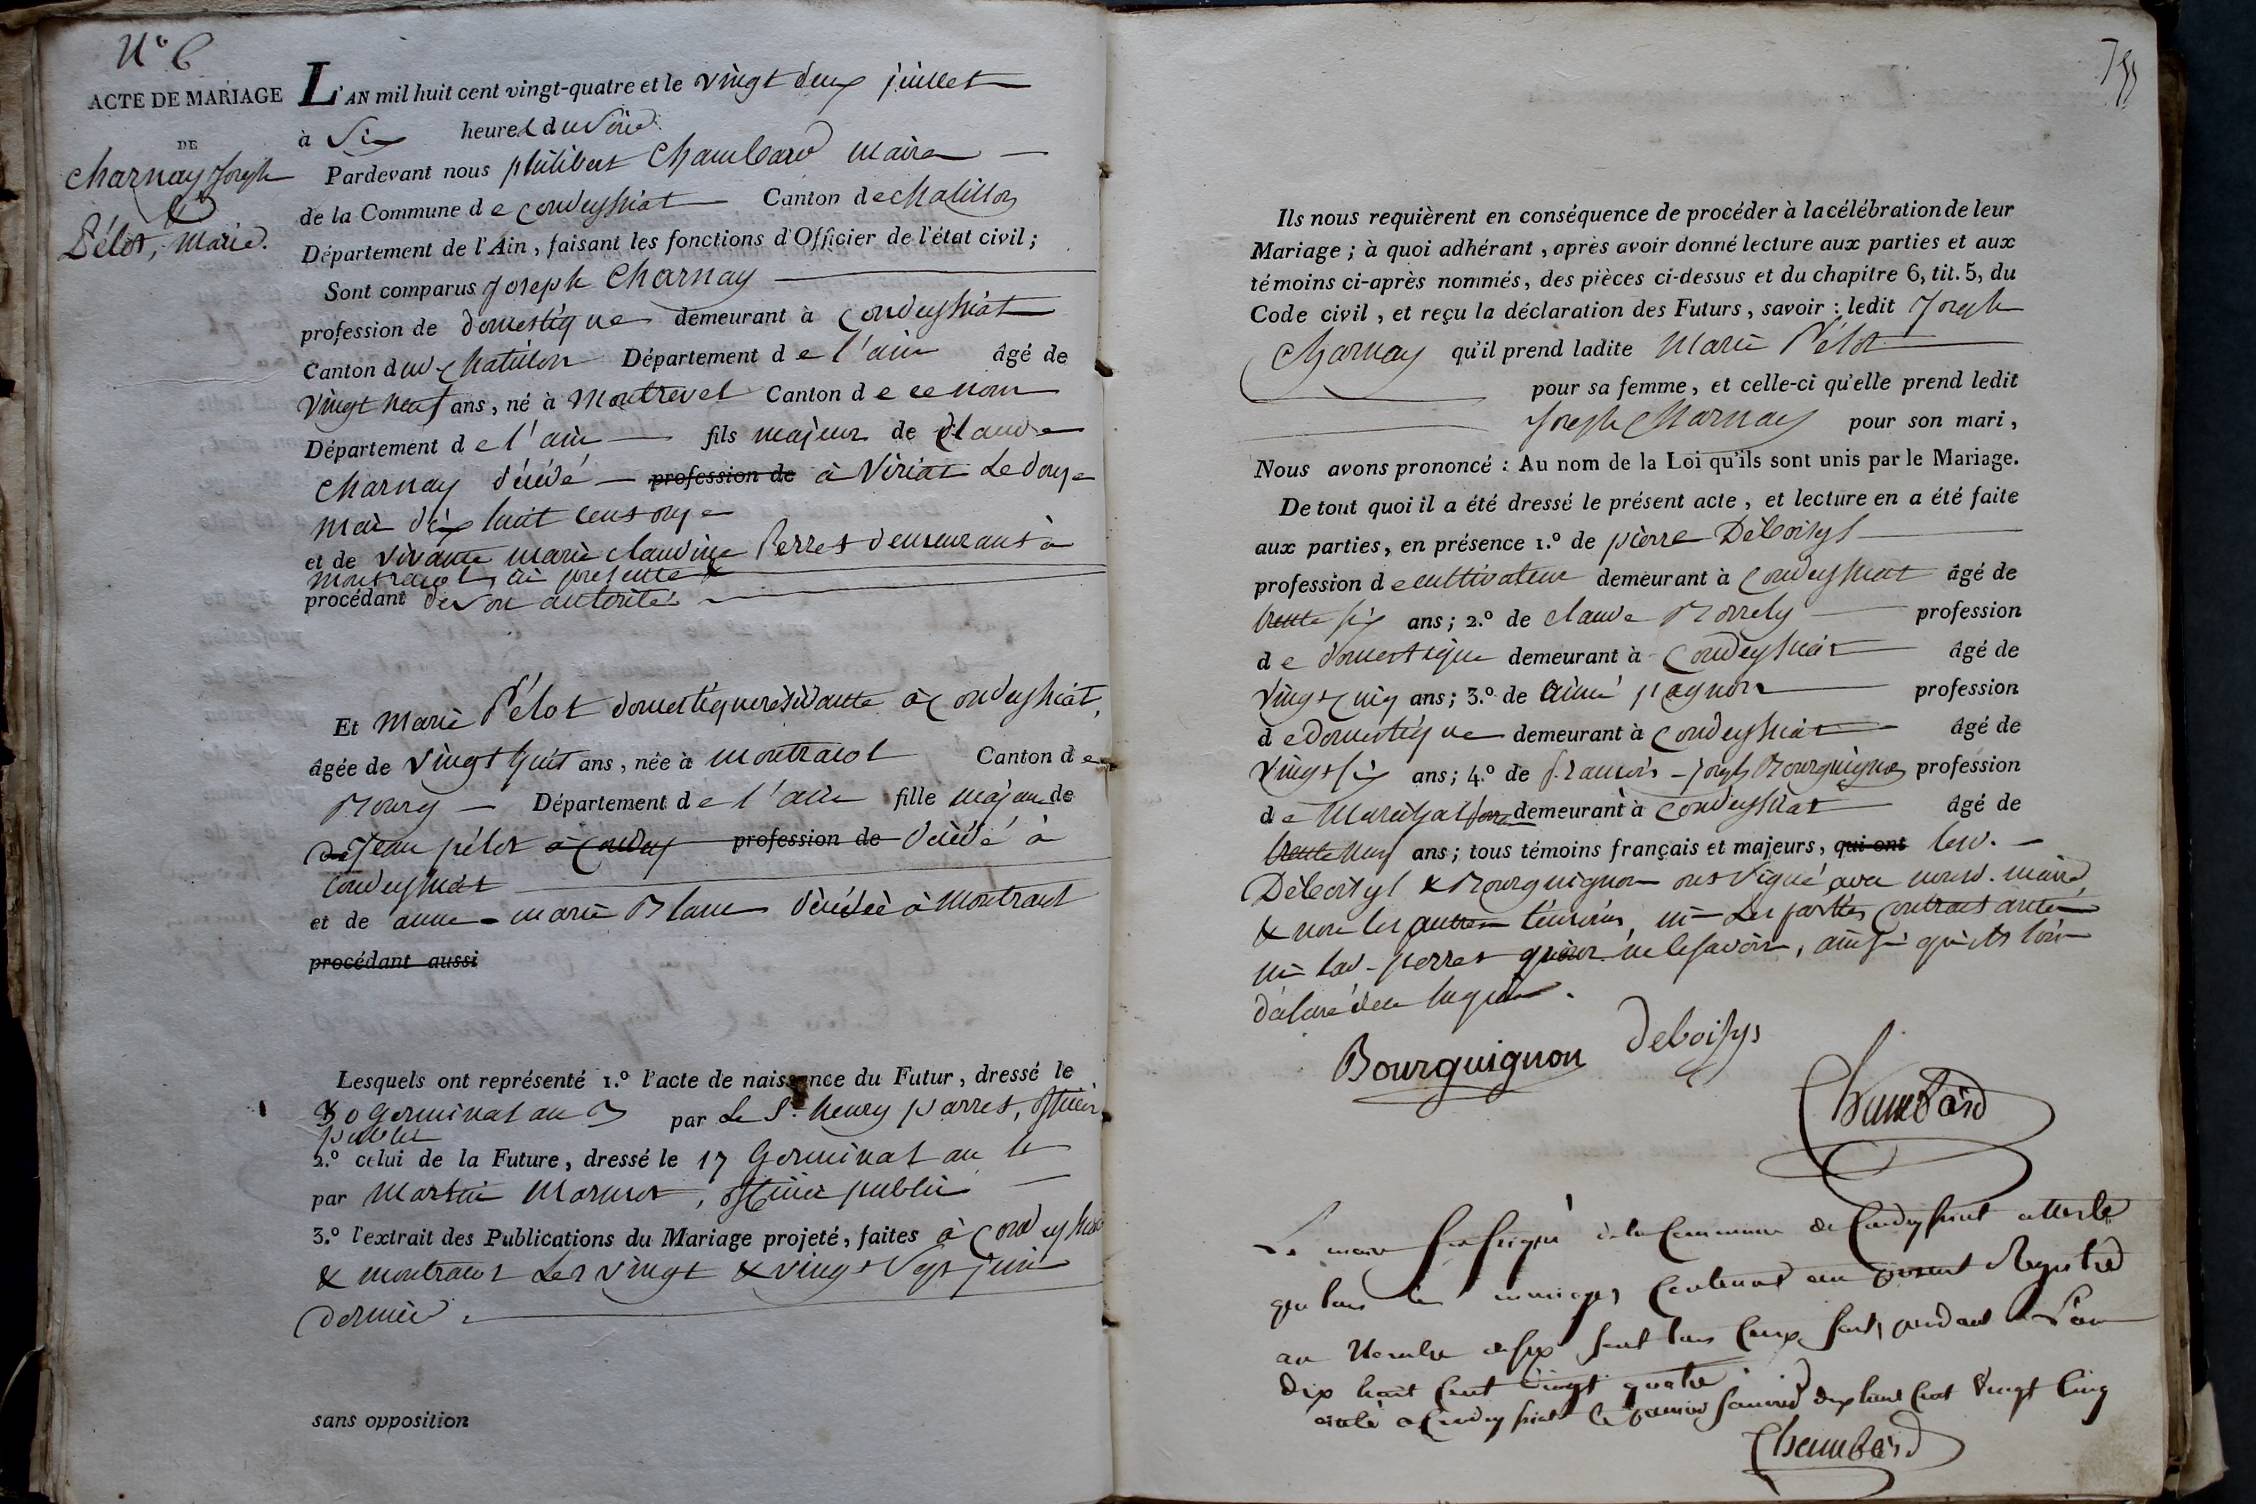 N° 6
ACTE DE MARIAGE
DE
Charnay Joseph
&
Pélot, Marie.
L'AN mil huit cent vingt-quatre et le vingt deux juillet
à Six heures du Soir
Pardevant nous philibert Chambard maire
de la Commune de condeyssiat Canton de chatillon
Département de l'Ain, faisant les fonctions d'Officier de l'état civil;
Sont comparus Joseph Charnay
profession de domestique demeurant à condeyssiat
Canton dud. chatillon Département de l'ain âgé de
vingt neuf ans, né à Montrevel Canton de ce nom
Département de l'ain fils majeur de claude
Charnay décédé profession de à Viriat Le douze
mai dix huit cens onze
et de vivante marie claudine Perret demeurant à
montracol, ici présente &
procédant de son autorité
Et Marie Pélot domestique résidante à condeyssiat,
âgée de vingt huit ans, née à montracol Canton de
Bourg Département de l'ain fille majeure de
de Jean pélot à condey profession de décédé à
condeyssiat
et de anne-marie Blanc décédée à Montracol
procédant aussi
Lesquels ont représenté 1.º l'acte de naissance du Futur, dressé le
30 Germinal an 3 par Le Sr. henry parret, officier
public
2.º celui de la Future, dressé le 17 Germinal an 4
par Martin Marmet, officier public
3.º l'extrait des Publications du Mariage projeté, faites à condeyssiat
& montracol Les vingt & vingt Sept juin
dernier.
sans opposition
Ils nous requièrent en conséquence de procéder à la célébration de leur
Mariage; à quoi adhérant, après avoir donné lecture aux parties et aux
témoins ci-après nommés, des pièces ci-dessus et du chapitre 6, tit. 5, du
Code civil, et reçu la déclaration des Futurs, savoir: ledit Joseph
Charnay qu'il prend ladite Marie Pélot
pour sa femme, et celle-ci qu'elle prend ledit
Joseph Charnay pour son mari,
Nous avons prononcé: Au nom de la Loi qu'ils sont unis par le Mariage.
De tout quoi il a été dressé le présent acte, et lecture en a été faite
aux parties, en présence 1.º de pierre Deboisys
profession de cultivateur demeurant à Condeyssiat âgé de
trente six ans; 2.º de claude Morrely profession
de domestique demeurant à Condeyssiat âgé de
vingt cinq ans; 3.º de aimé pagnon profession
de Domestique demeurant à condeyssiat âgé de
vingt six ans; 4.º de francois-joseph Bourguignon profession
de Maréchal ferrant demeurant à condeyssiat âgé de
trente neuf ans; tous témoins français et majeurs, qui ont lesd.
Deboisys & Bourguignon ont signé avec nousd. maire
& non les autres témoins, ni Les parties contractantes
ni lad. perret pour ne le savoir, ainsi qu'ils l'ont
déclaré de ce requis.
Bourguignon Deboisys
Chambard
Le maire soussigné de la Commune de Condeyssiat atteste
que tous les mariages contenus au présent Registre
au Nombre de six sont tous ceux faits pendant L'an
dix huit cent vingt quatre
à Condeyssiat le premier janvier dix huit cent vingt cinq
Chambard